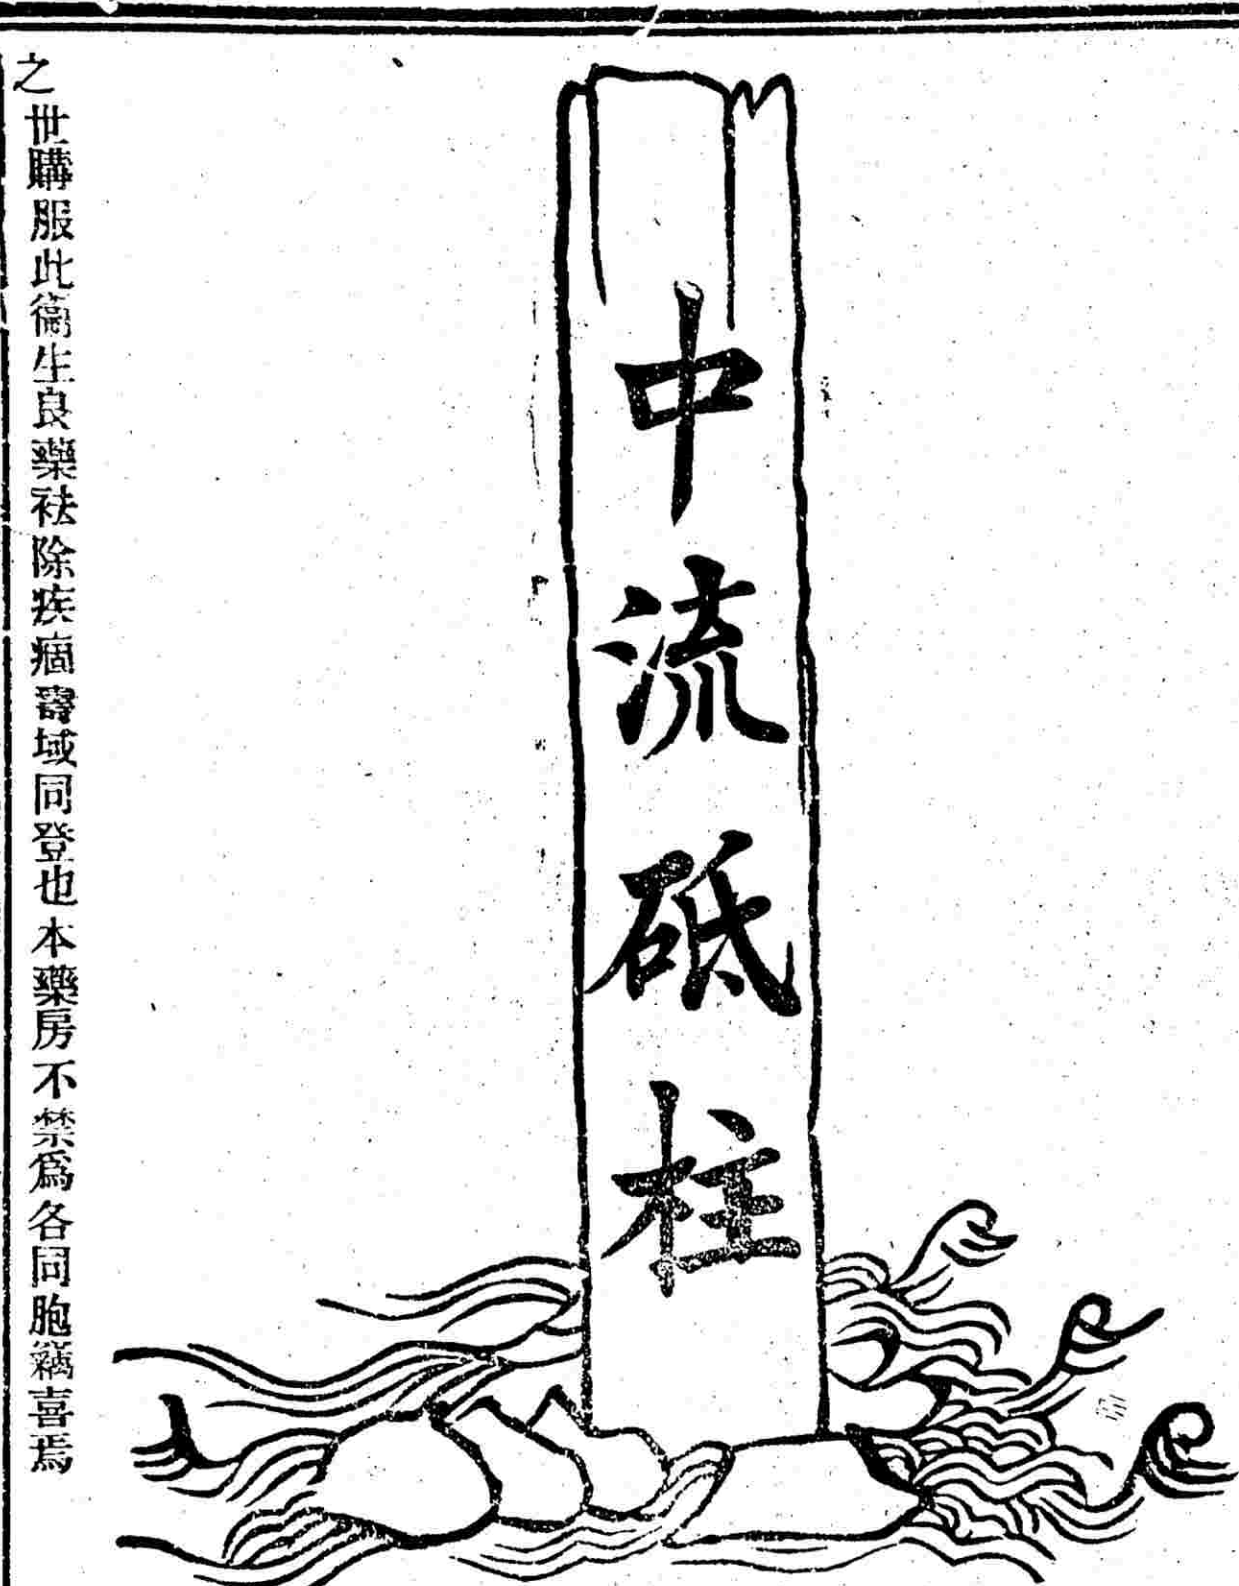 中流砥柱
之世購服此衞生良藥祛除疾痼壽域同登也本藥房不禁爲各同胞竊喜焉